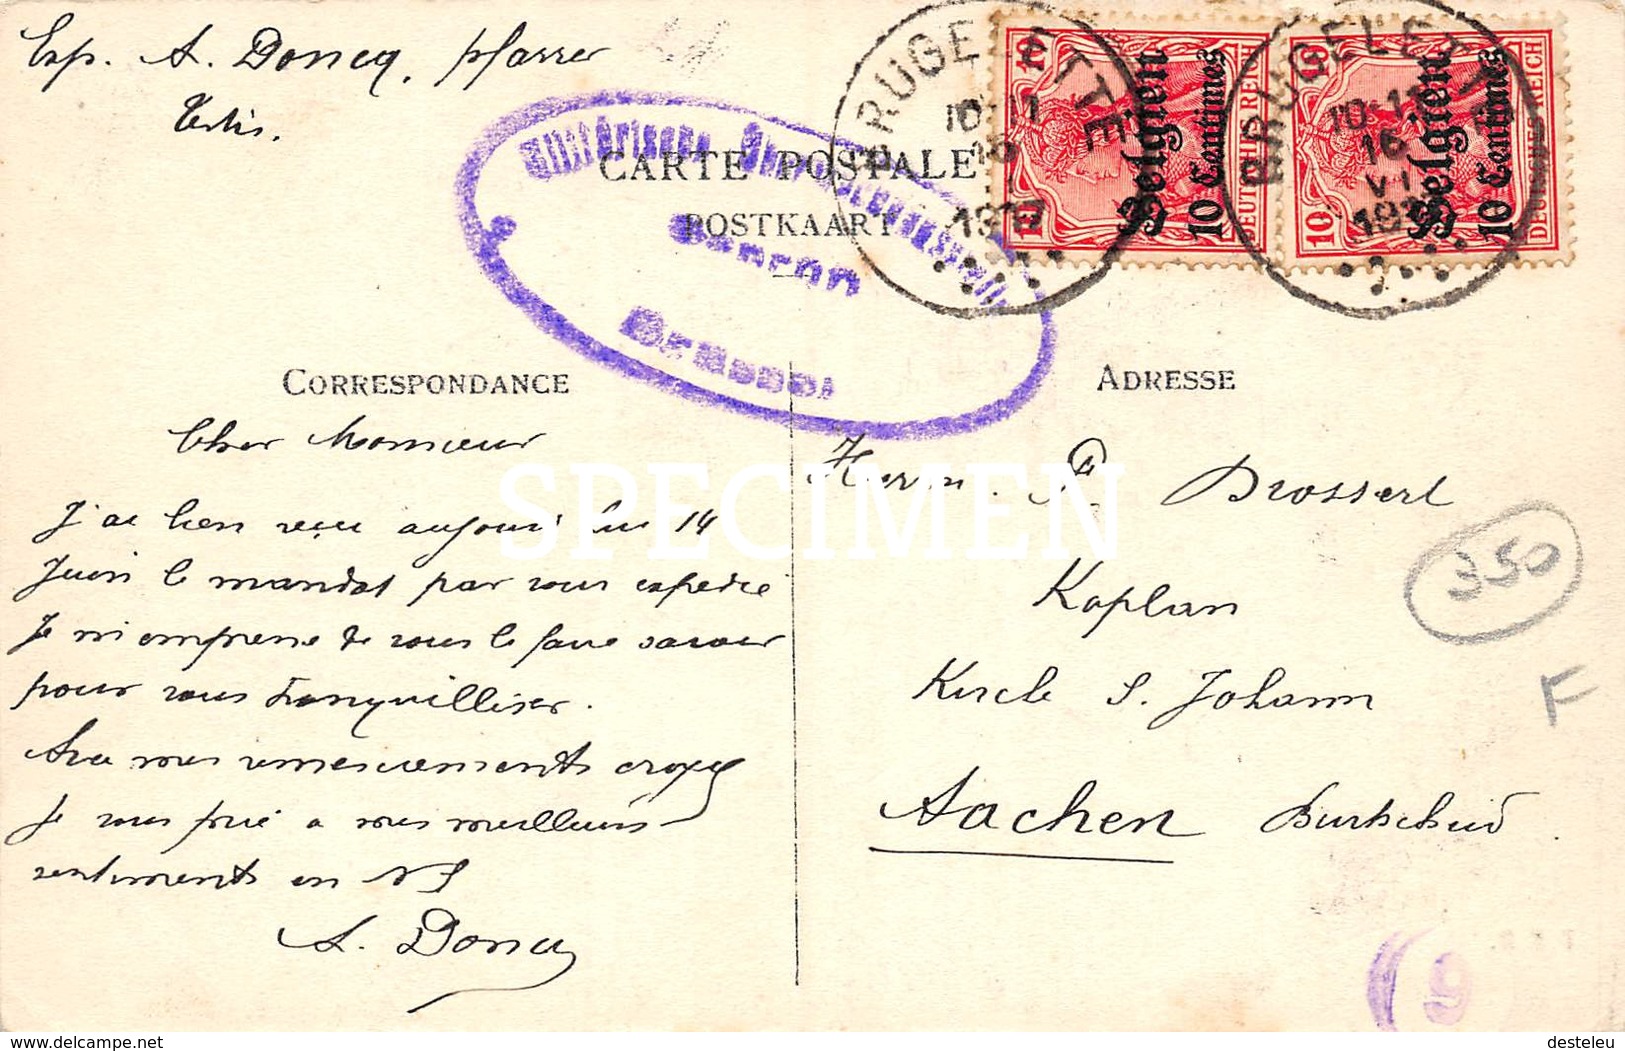 Exp. A. Doncq, pfarrer
CARTE POSTALE
POSTKAART
BRUGELETTE
10-11
16
1916
BRUGELETTE
10-11
16
VI
191
Belgien
10 Centimes
DEUTSCHES REICH
10
10
Belgien
10 Centimes
DEUTSCHES REICH
10
10
CORRESPONDANCE
ADRESSE
SPECIMEN
Cher Monsieur
J'ai bien reçu aujourd'hui 14
Juin le mandat par vous expédié
Je m'empresse de vous le faire savoir
pour vous tranquilliser.
Avec mes remerciements croyez
je vous prie à mes meilleurs
sentiments en NS
A. Doncq
Herrn. P. Drossert
Kaplan
Kirche S. Johann
Aachen Burtscheid
350
F
9
delcampe.net
desteleu